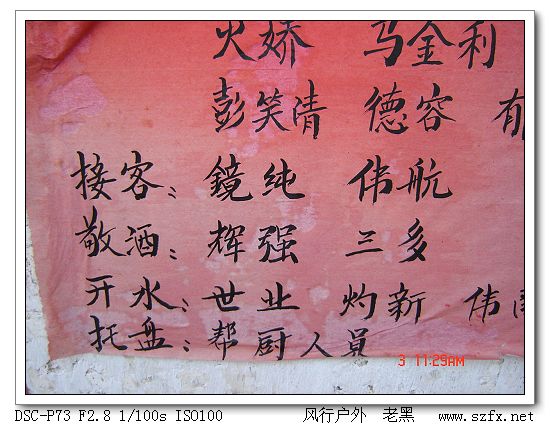 火娇 马金利
彭笑清 德容 郁
接客: 鏡纯 伟航
敬酒: 辉强 三多
开水: 世业 灼新 伟
托盘: 帮厨人員
3 11:29AM
DSC-P73 F2.8 1/100s ISO100 风行户外 老黑 www.szfx.net